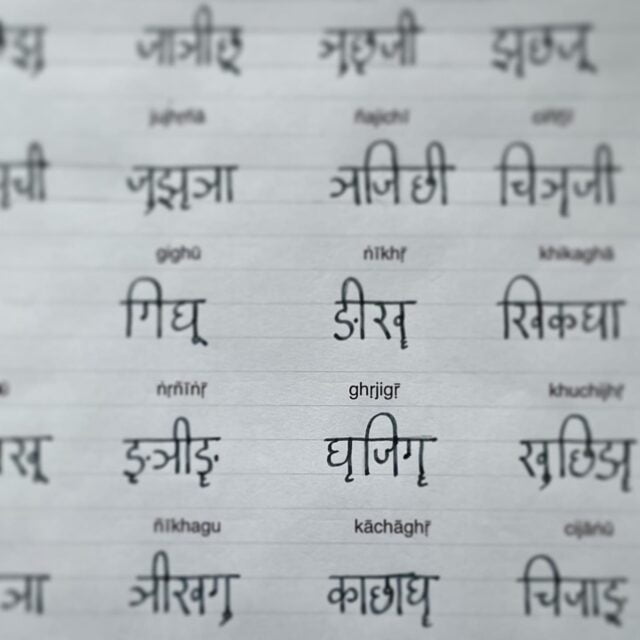 जाञीछृ ञुछृजी झृछजू
jujhṛñā ñajichī ciñṛjī
जुझृञा ञजिछी चिञृजी
gighū ṅīkhṝ khikaghā
गिघू ङीखॄ खिकघा
ṅṛñīṅṝ ghṛjigṝ khuchijhṝ
ङृञीङॄ घृजिगॄ खुछिझॄ
ñīkhagu kāchāghṝ cijāṅū
ञा ञीखगु काछाघॄ चिजाङू